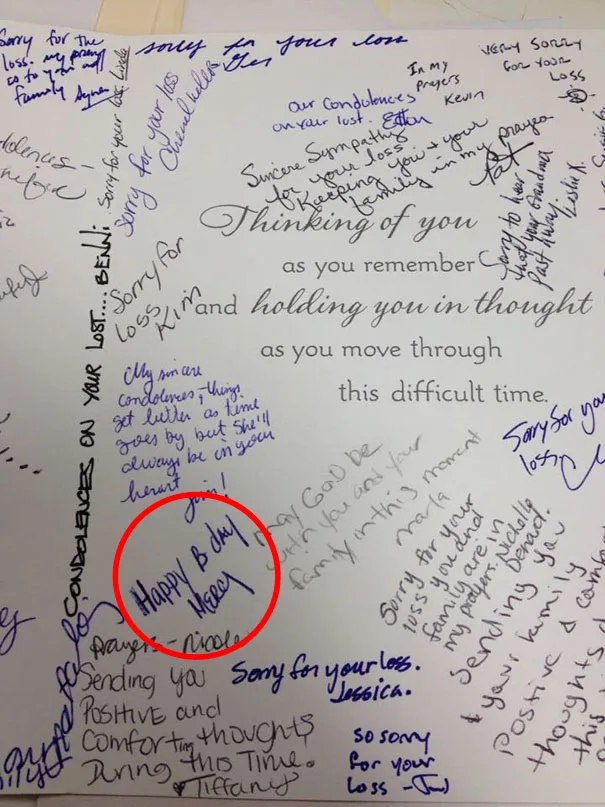 Sorry for the
loss. my prayers
as to you and
family Agnes
sorry for your loss
VERY SORRY
FOR YOUR
LOSS
In my
prayers
Kevin
our condolences
on your lost.
Sorry for your loss. Linda
Sorry for your loss
Sincere Sympathy
for your loss
Keeping you + your
family in my prayers
Pat
Sorry to hear
that your Grandma
Past away.
Leslie K.
Thinking of you
as you remember
and holding you in thought
as you move through
this difficult time.
Sorry for
loss
Kim
CONDOLENCES ON YOUR LOST.... BENNI
My sincere
condolences, things
get better as time
goes by but she'll
always be in your
heart
Sorry for your
loss
may God be
with you and your
family in this moment
marla
Happy B day
MERCY
Sorry for your
loss you and
family are in
my prayers. Nicholle
Denad.
Sending you
& your family
Postive &
thoughts
this
prayers - Nicole
Sending you
POSITIVE and
Comforting thoughts
During this Time.
Tiffany
Sorry for your loss.
Jessica.
so sorry
for your
loss